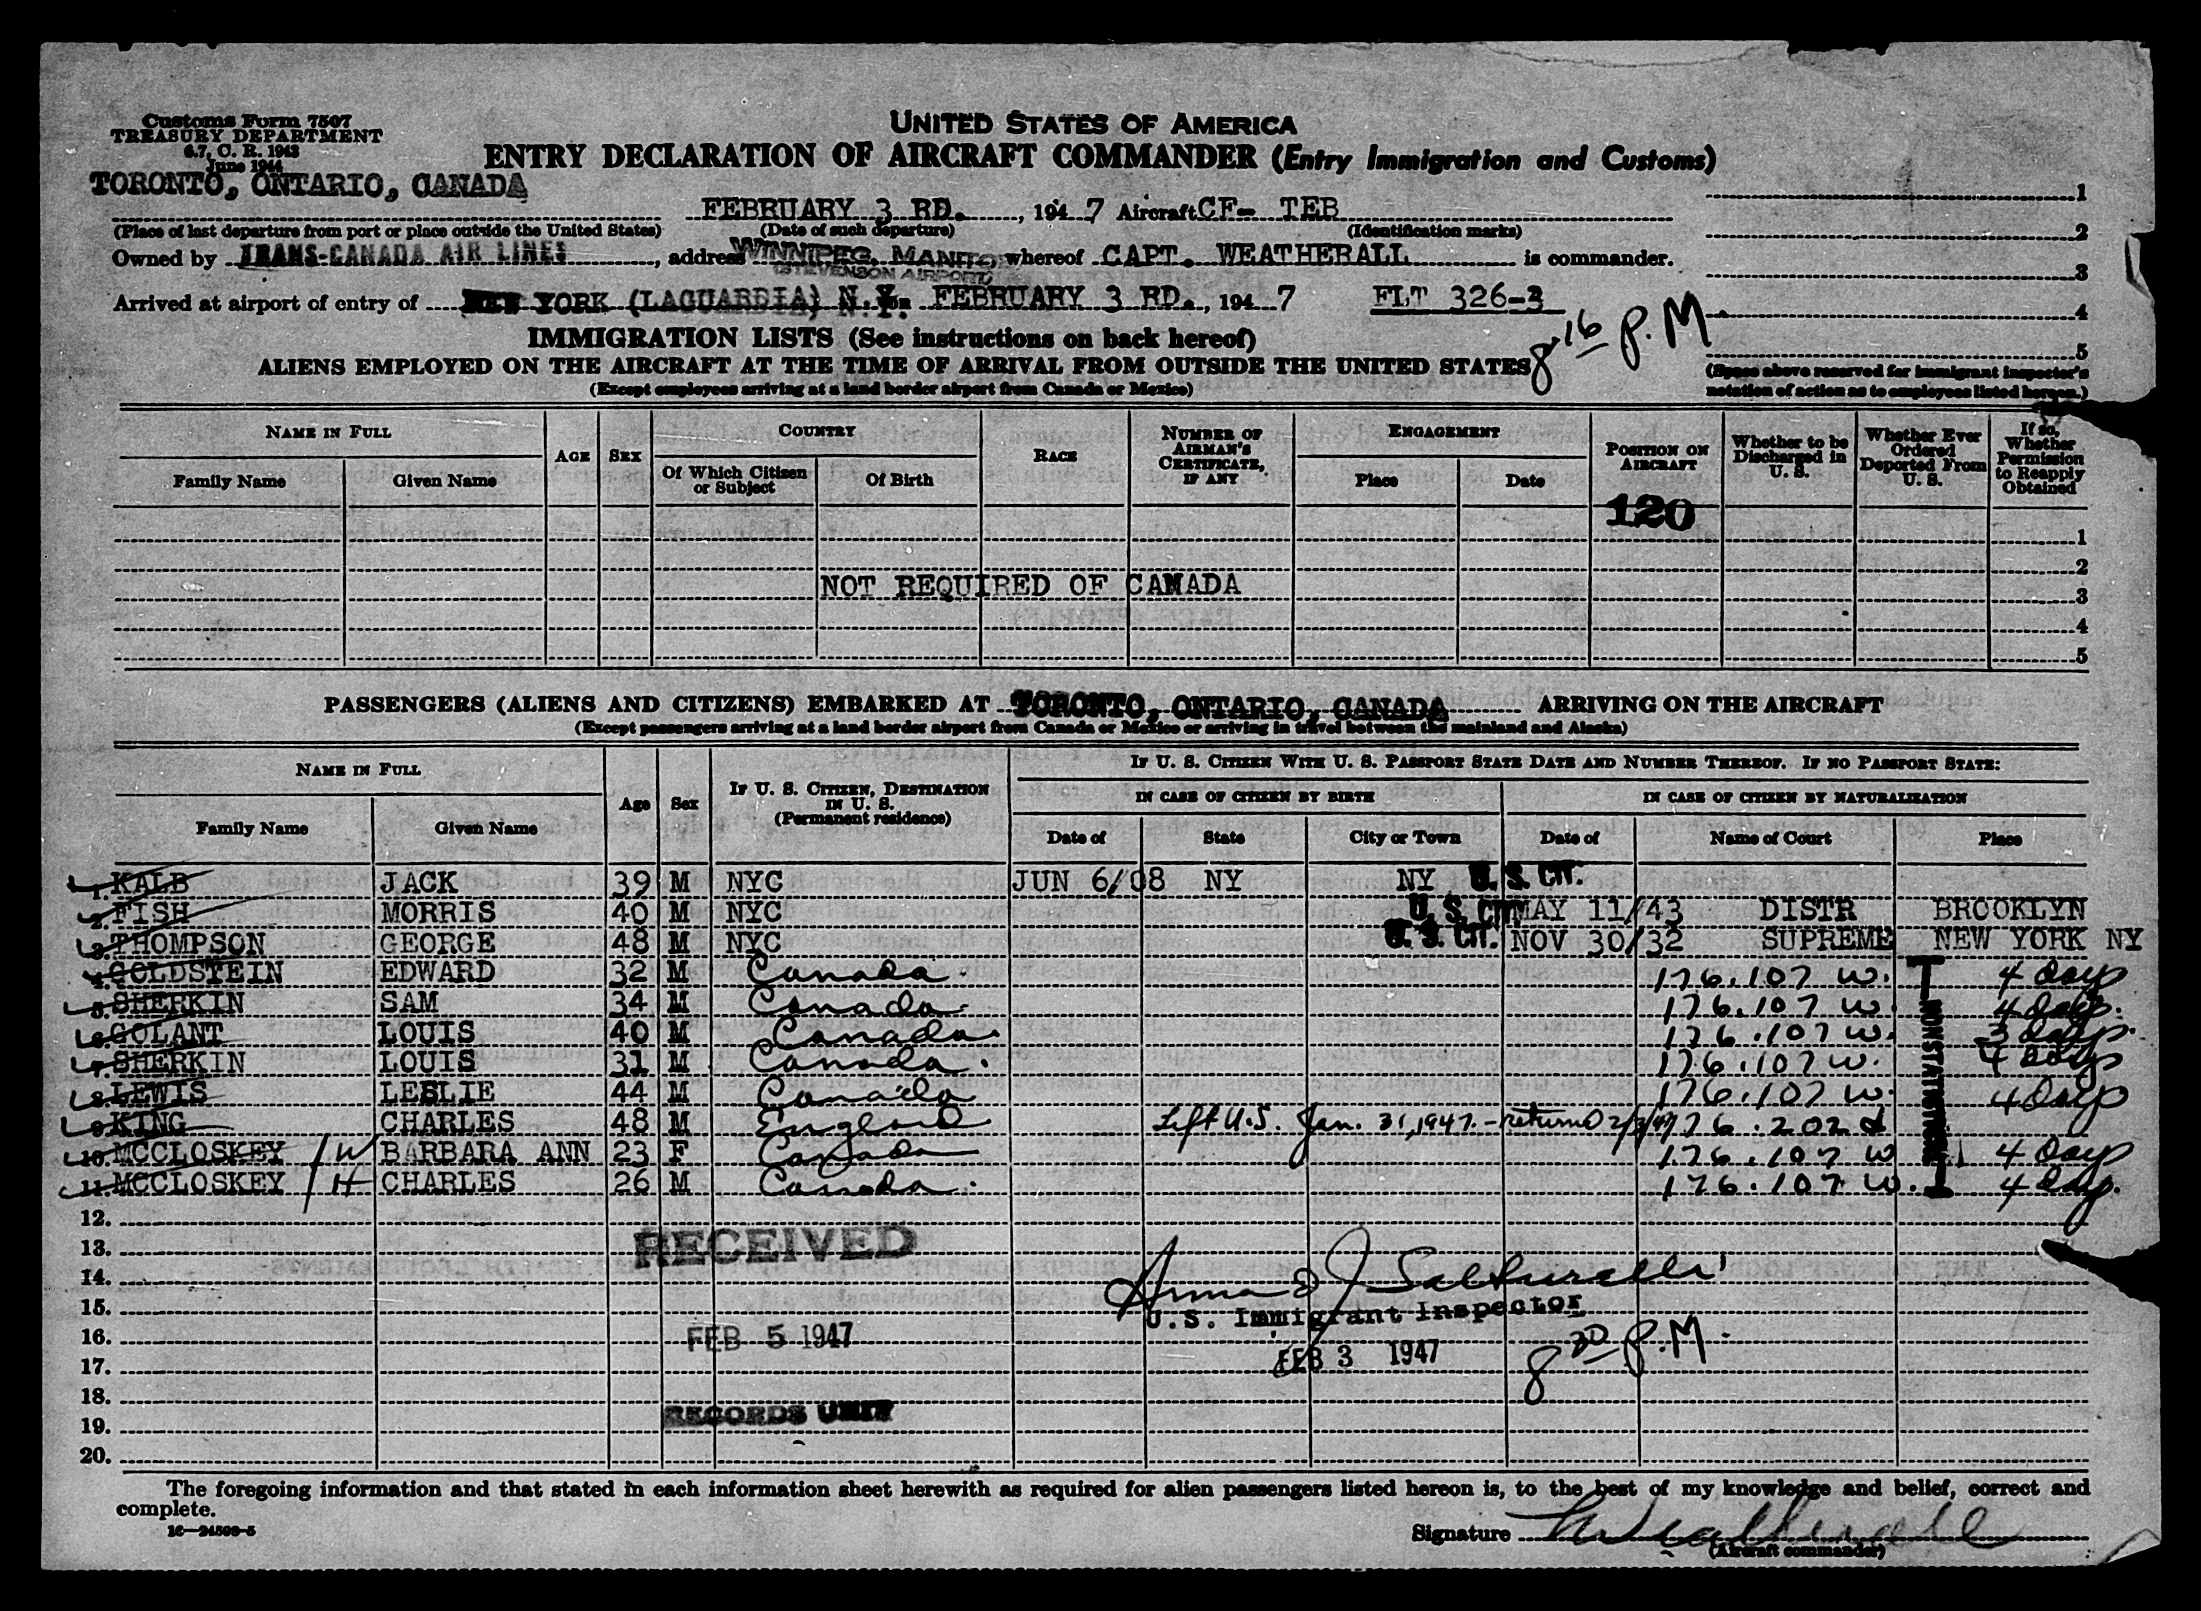 Customs Form 7507
TREASURY DEPARTMENT
6.7, C. R. 1943
June 1944
UNITED STATES OF AMERICA
ENTRY DECLARATION OF AIRCRAFT COMMANDER (Entry Immigration and Customs)
TORONTO, ONTARIO, CANADA
FEBRUARY 3 RD. , 194 7 Aircraft CF- TEB
(Place of last departure from port or place outside the United States) (Date of such departure) (Identification marks)
Owned by TRANS-CANADA AIR LINES , address WINNIPEG, MANITO, whereof CAPT. WEATHERALL is commander.
(STEVENSON AIRPORT)
Arrived at airport of entry of NEW YORK (LAGUARDIA) N.Y. on FEBRUARY 3 RD. , 194 7 FLT 326-3
8 16 P.M
1
2
3
4
5
(Space above reserved for immigrant inspector's
notation of action as to employees listed hereon.)
IMMIGRATION LISTS (See instructions on back hereof)
ALIENS EMPLOYED ON THE AIRCRAFT AT THE TIME OF ARRIVAL FROM OUTSIDE THE UNITED STATES
(Except employees arriving at a land border airport from Canada or Mexico)
NAME IN FULL AGE SEX COUNTRY RACE NUMBER OF AIRMAN'S CERTIFICATE, IF ANY ENGAGEMENT POSITION ON AIRCRAFT Whether to be Discharged in U. S. Whether Ever Ordered Deported From U. S. If so, Whether Permission to Reapply Obtained
Family Name Given Name Of Which Citizen or Subject Of Birth Place Date
120
1
2
NOT REQUIRED OF CANADA
3
4
5
PASSENGERS (ALIENS AND CITIZENS) EMBARKED AT TORONTO, ONTARIO, CANADA ARRIVING ON THE AIRCRAFT
(Except passengers arriving at a land border airport from Canada or Mexico or arriving in travel between the mainland and Alaska)
NAME IN FULL Age Sex IF U. S. CITIZEN, DESTINATION IN U. S. (Permanent residence) IF U. S. CITIZEN WITH U. S. PASSPORT STATE DATE AND NUMBER THEREOF. IF NO PASSPORT STATE:
IN CASE OF CITIZEN BY BIRTH IN CASE OF CITIZEN BY NATURALIZATION
Family Name Given Name Date of State City or Town Date of Name of Court Place
1. KALB JACK 39 M NYC JUN 6/08 NY NY U. S. CIT.
2. FISH MORRIS 40 M NYC U. S. CIT. MAY 11/43 DISTR BROOKLYN
3. THOMPSON GEORGE 48 M NYC U. S. CIT. NOV 30/32 SUPREME NEW YORK NY
4. GOLDSTEIN EDWARD 32 M Canada 176.107 W. 4 days
5. SHERKIN SAM 34 M Canada 176.107 W. 4 days.
6. GOLANT LOUIS 40 M Canada 176.107 W. 3 days.
7. SHERKIN LOUIS 31 M Canada 176.107 W. 4 days
8. LEWIS LESLIE 44 M Canada 176.107 W. 4 days
9. KING CHARLES 48 M England Left U.S. Jan. 31, 1947. - returned 2/3/47 176.202 d
10. MCCLOSKEY / W BARBARA ANN 23 F Canada 176.107 W 4 days
11. MCCLOSKEY / H CHARLES 26 M Canada 176.107 W. 4 days.
NONSTATISTICAL
12.
13.
RECEIVED
14.
15.
U.S. Immigrant Inspector
16.
FEB 5 1947
FEB 3 1947
8 30 P.M.
17.
18.
RECORDS UNIT
19.
20.
The foregoing information and that stated in each information sheet herewith as required for alien passengers listed hereon is, to the best of my knowledge and belief, correct and
complete.
16—24598-5
Signature Weatherall
(Aircraft commander)